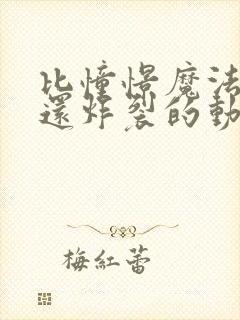 比憧憬魔法
還炸裂的動
梅紅蕾